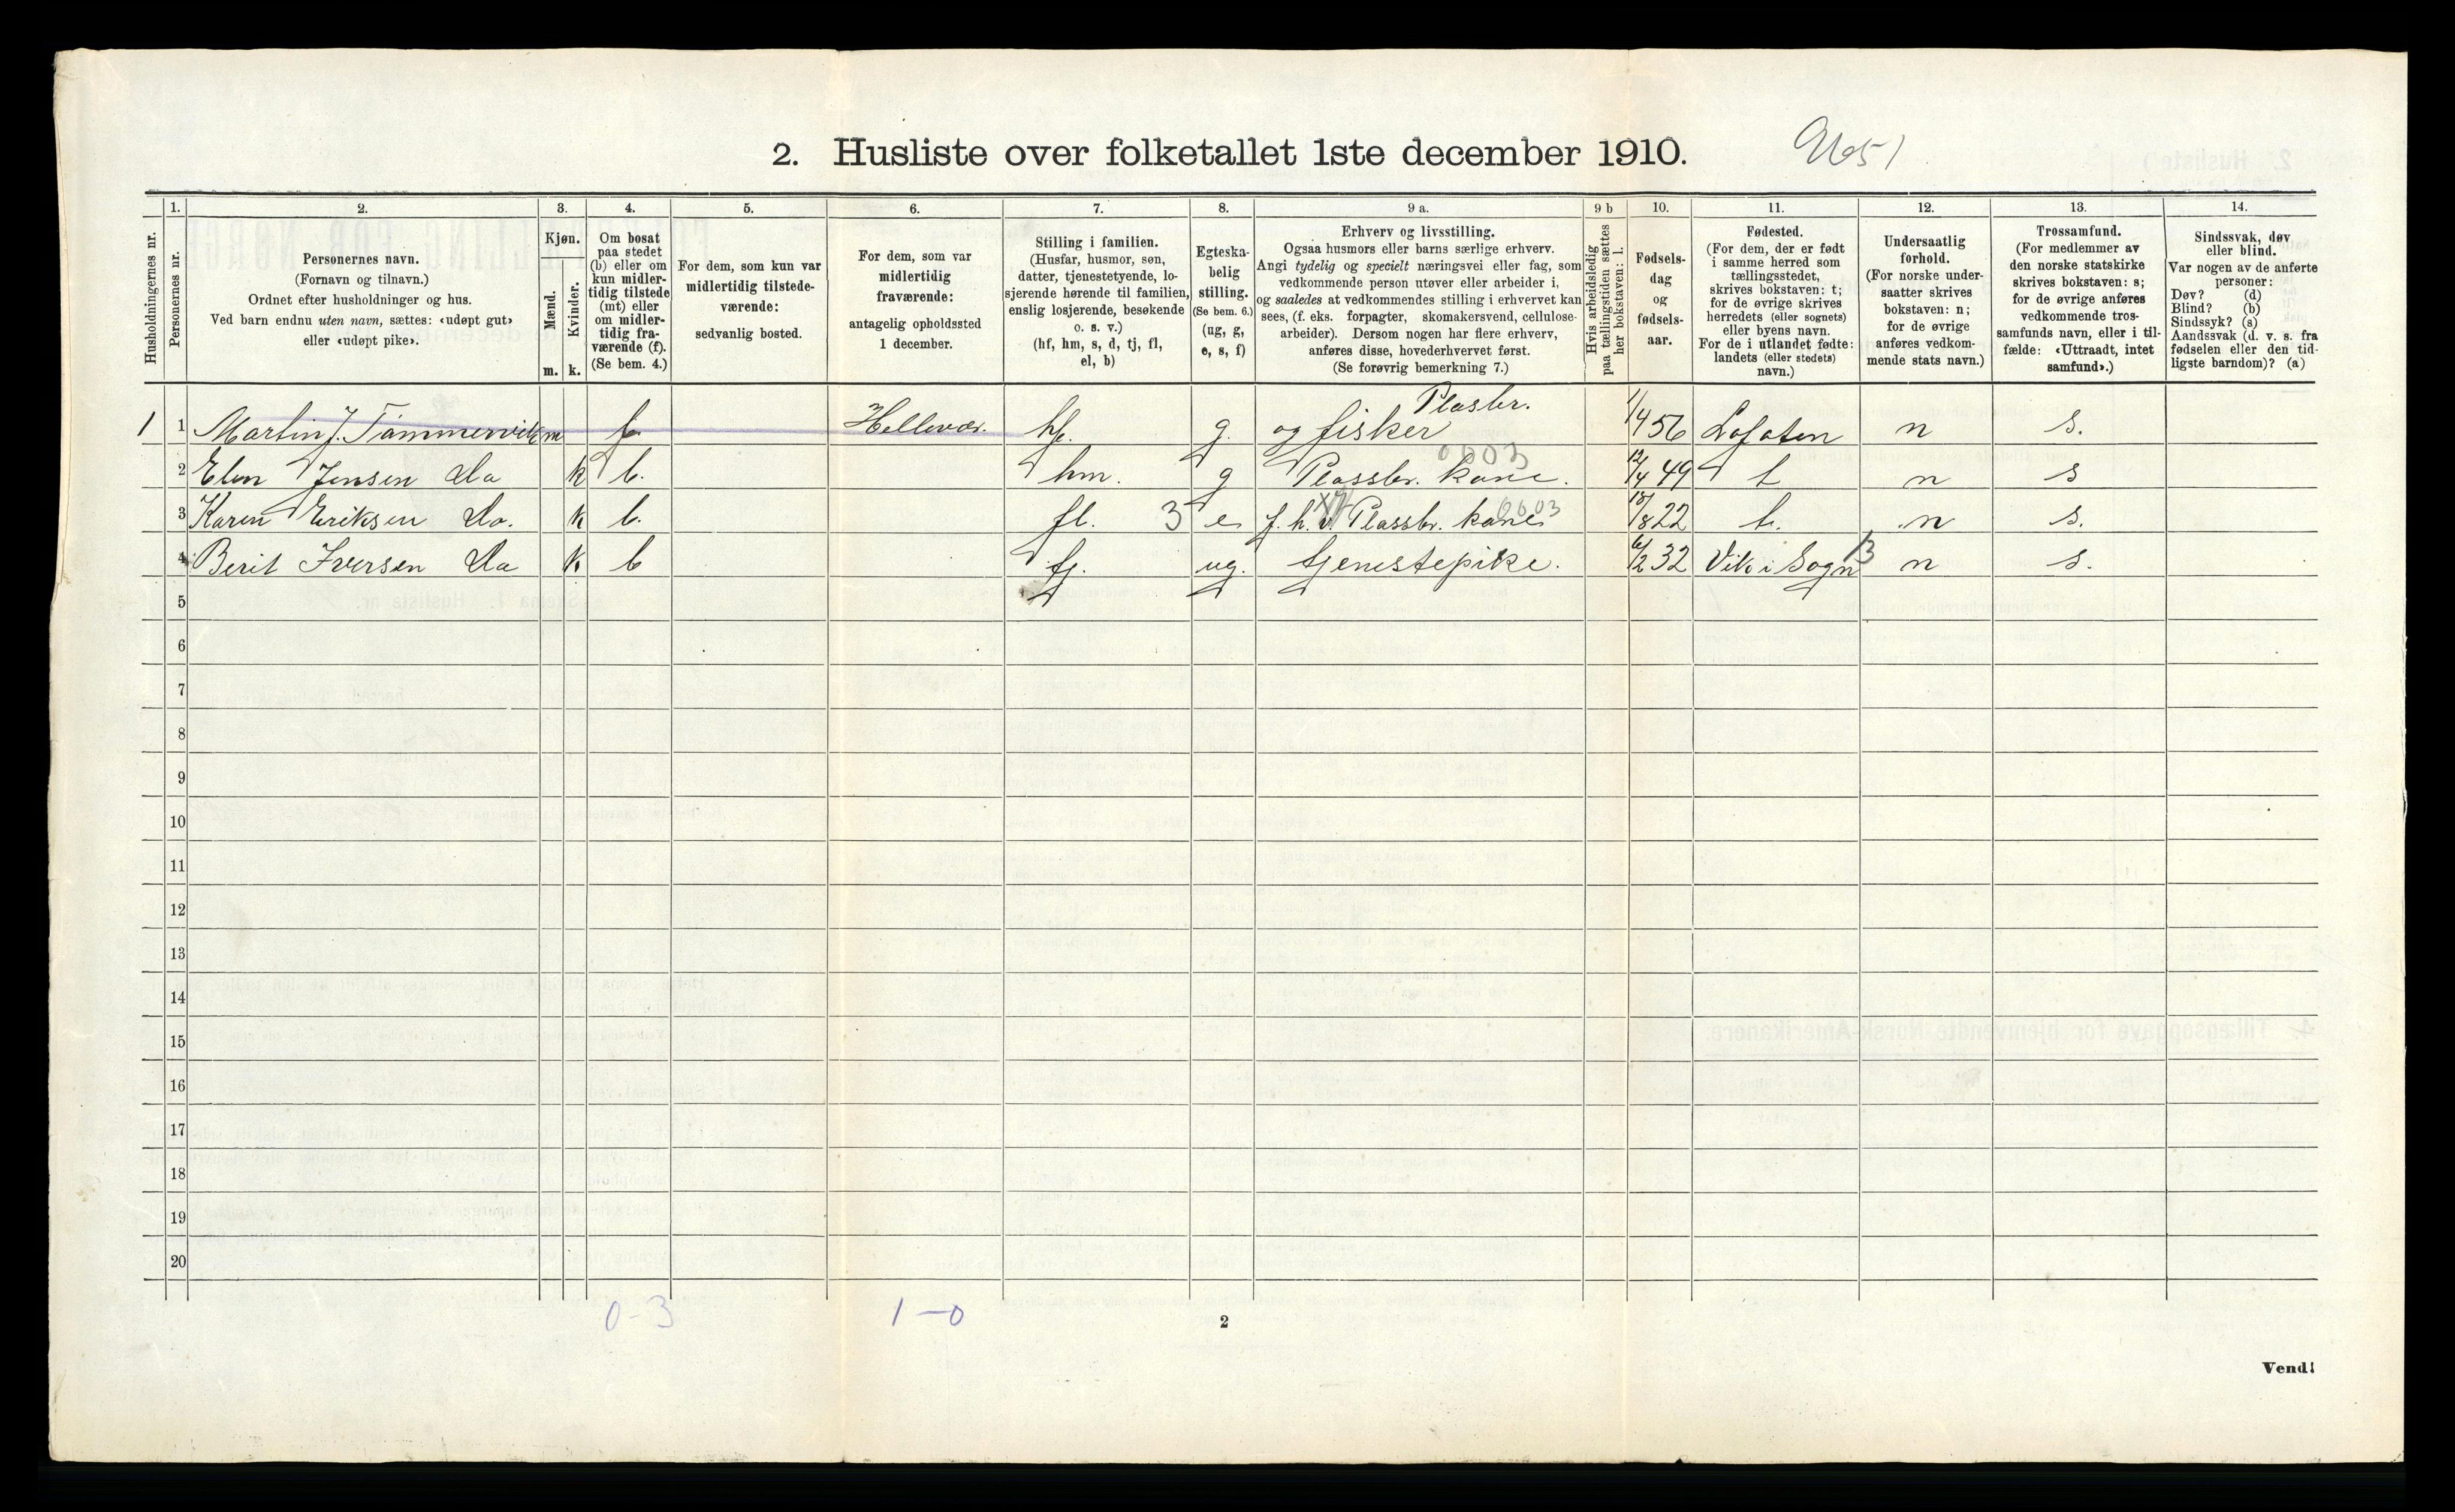 2. Husliste over folketallet 1ste december 1910.
Husholdningernes nr.
1.
Personernes nr.
2.
Personernes navn.
(Fornavn og tilnavn.)
Ordnet efter husholdninger og hus.
Ved barn endnu uten navn, sættes: «udøpt gut»
eller «udøpt pike».
3.
Kjøn.
Mænd.
Kvinder.
m. k.
4.
Om bosat
paa stedet
(b) eller om
kun midler-
tidig tilstede
(mt) eller
om midler-
tidig fra-
værende (f).
(Se bem. 4.)
5.
For dem, som kun var
midlertidig tilstede-
værende:
sedvanlig bosted.
6.
For dem, som var
midlertidig
fraværende:
antagelig opholdssted
1 december.
7.
Stilling i familien.
(Husfar, husmor, søn,
datter, tjenestetyende, lo-
sjerende hørende til familien,
enslig losjerende, besøkende
o. s. v.)
(hf, hm, s, d, tj, fl,
el, b)
8.
Egteska-
belig
stilling.
(Se bem. 6.)
(ug, g,
e, s, f)
9 a.
Erhverv og livsstilling.
Ogsaa husmors eller barns særlige erhverv.
Angi tydelig og specielt næringsvei eller fag, som
vedkommende person utøver eller arbeider i,
og saaledes at vedkommendes stilling i erhvervet kan
sees, (f. eks. forpagter, skomakersvend, cellulose-
arbeider). Dersom nogen har flere erhverv,
anføres disse, hovederhvervet først.
(Se forøvrig bemerkning 7.)
9 b
Hvis arbeidsledig
paa tællingstiden sættes
her bokstaven: l.
10.
Fødsels-
dag
og
fødsels-
aar.
11.
Fødested.
(For dem, der er født
i samme herred som
tællingsstedet,
skrives bokstaven: t;
for de øvrige skrives
herredets (eller sognets)
eller byens navn.
For de i utlandet fødte:
landets (eller stedets)
navn.)
12.
Undersaatlig
forhold.
(For norske under-
saatter skrives
bokstaven: n;
for de øvrige
anføres vedkom-
mende stats navn.)
13.
Trossamfund.
(For medlemmer av
den norske statskirke
skrives bokstaven: s;
for de øvrige anføres
vedkommende tros-
samfunds navn, eller i til-
fælde: «Uttraadt, intet
samfund».)
14.
Sindssvak, døv
eller blind.
Var nogen av de anførte
personer:
Døv? (d)
Blind? (b)
Sindssyk? (s)
Aandssvak (d. v. s. fra
fødselen eller den tid-
ligste barndom)? (a)
Plasbr.
1 1 Martin J. Tømmervik m f Hellevær. hf. g. og fisker 1/4 56 Lofoten n s.
0003
2 Elen Jensen Do k b. hm. g Plassbr. kone. 12/4 49 t n s
3 Karen Eriksen Do. k b. fl. 3 e f. h. v. Plassbr. kone 0003 18/8 22 t. n s.
4 Berit Iversen Do k b tj. ug. tjenestepike. 6/2 32 Vik i Sogn 13 n s.
5
6
7
8
9
10
11
12
13
14
15
16
17
18
19
20
0-3 1-0
2
Vend!